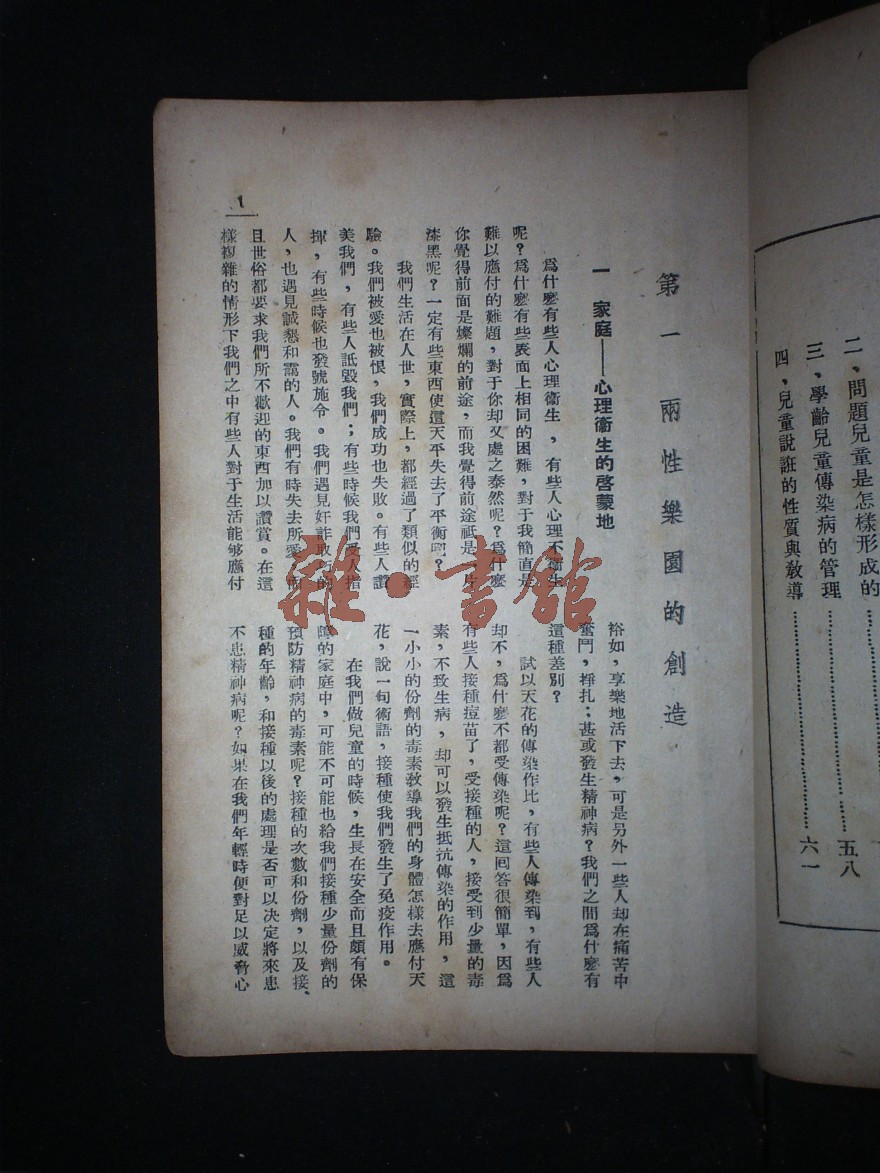 二、問題兒童是怎樣形成的…………五八
三、學齡兒童傳染病的管理…………六一
四、兒童說誑的性質與教導…………
第一 兩性樂園的創造
一 家庭——心理衞生的啓蒙地
爲什麼有些人心理衞生，有些人心理不衞生
呢？爲什麼有些表面上相同的困難，對于我簡直是
難以應付的難題，對于你却又處之泰然呢？爲什麼
你覺得前面是燦爛的前途，而我覺得前途祇是一片
漆黑呢？一定有些東西使這天平失去了平衡
我們生活在人世，實際上，都經過了類似的經
驗。我們被愛也被恨，我們成功也失敗。有些人讚
美我們，有些人詆毀我們；有些時候我們受人指
揮，有些時候也發號施令。我們遇見奸詐取巧的
人，也遇見誠懇和靄的人。我們有時失去所愛，而
且世俗都要求我們所不歡迎的東西加以讚賞。在這
樣複雜的情形下我們之中有些人對于生活能够應付
裕如，享樂地活下去，可是另外一些人却在痛苦中
奮鬥，掙扎；甚或發生精神病？我們之間爲什麼有
這種差別？
試以天花的傳染作比，有些人傳染到，有些人
却不，爲什麼不都受傳染呢？這回答很簡單，因爲
有些人接種痘苗了，受接種的人，接受到少量的毒
素，不致生病，却可以發生抵抗傳染的作用，這
一小小的份劑的毒素教導我們的身體怎樣去應付天
花，說一句術語，接種使我們發生了免疫作用。
在我們做兒童的時候，生長在安全而且頗有保
障的家庭中，可能不可能也給我們接種少量份劑的
預防精神病的毒素呢？接種的次數和份劑，以及接
種的年齡，和接種以後的處理是否可以决定將來患
不患精神病呢？如果在我們年輕時便對足以威脅心
1
雜·書館